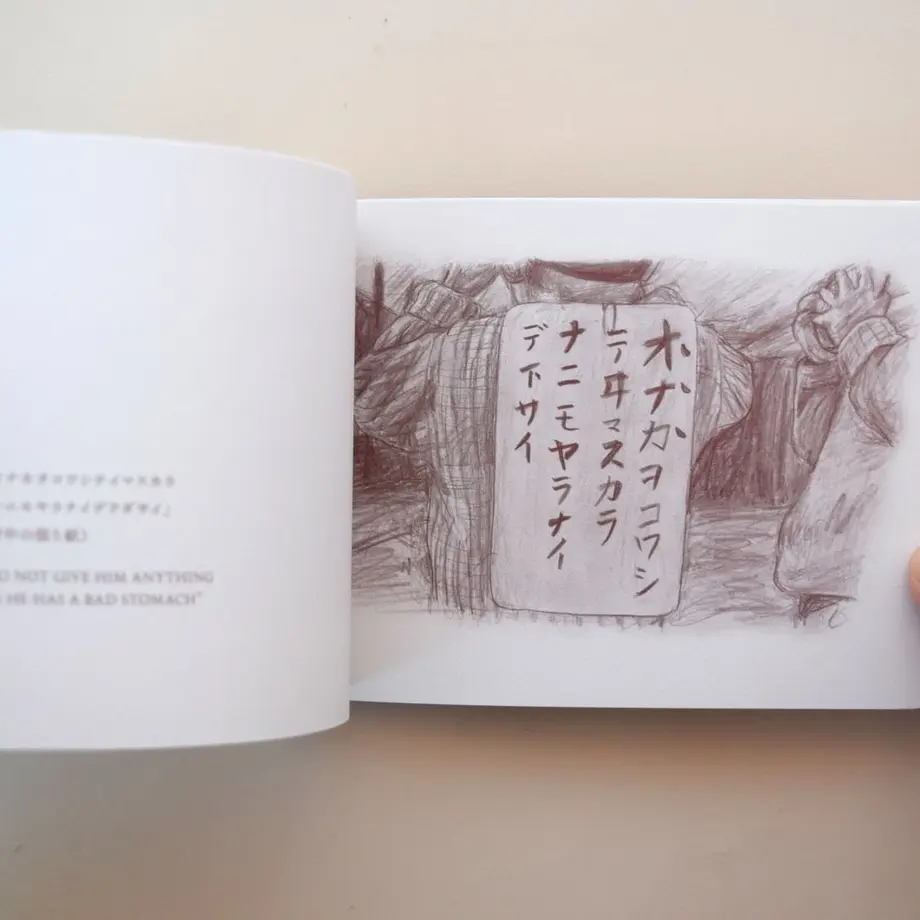 ナカヲコワシテイマスカラ
ニモヤラナイデクダサイ」
中の張り紙）
NOT GIVE HIM ANYTHING
HE HAS A BAD STOMACH"
オナカヲコワシ
テヰマスカラ
ナニモヤラナイ
デ下サイ